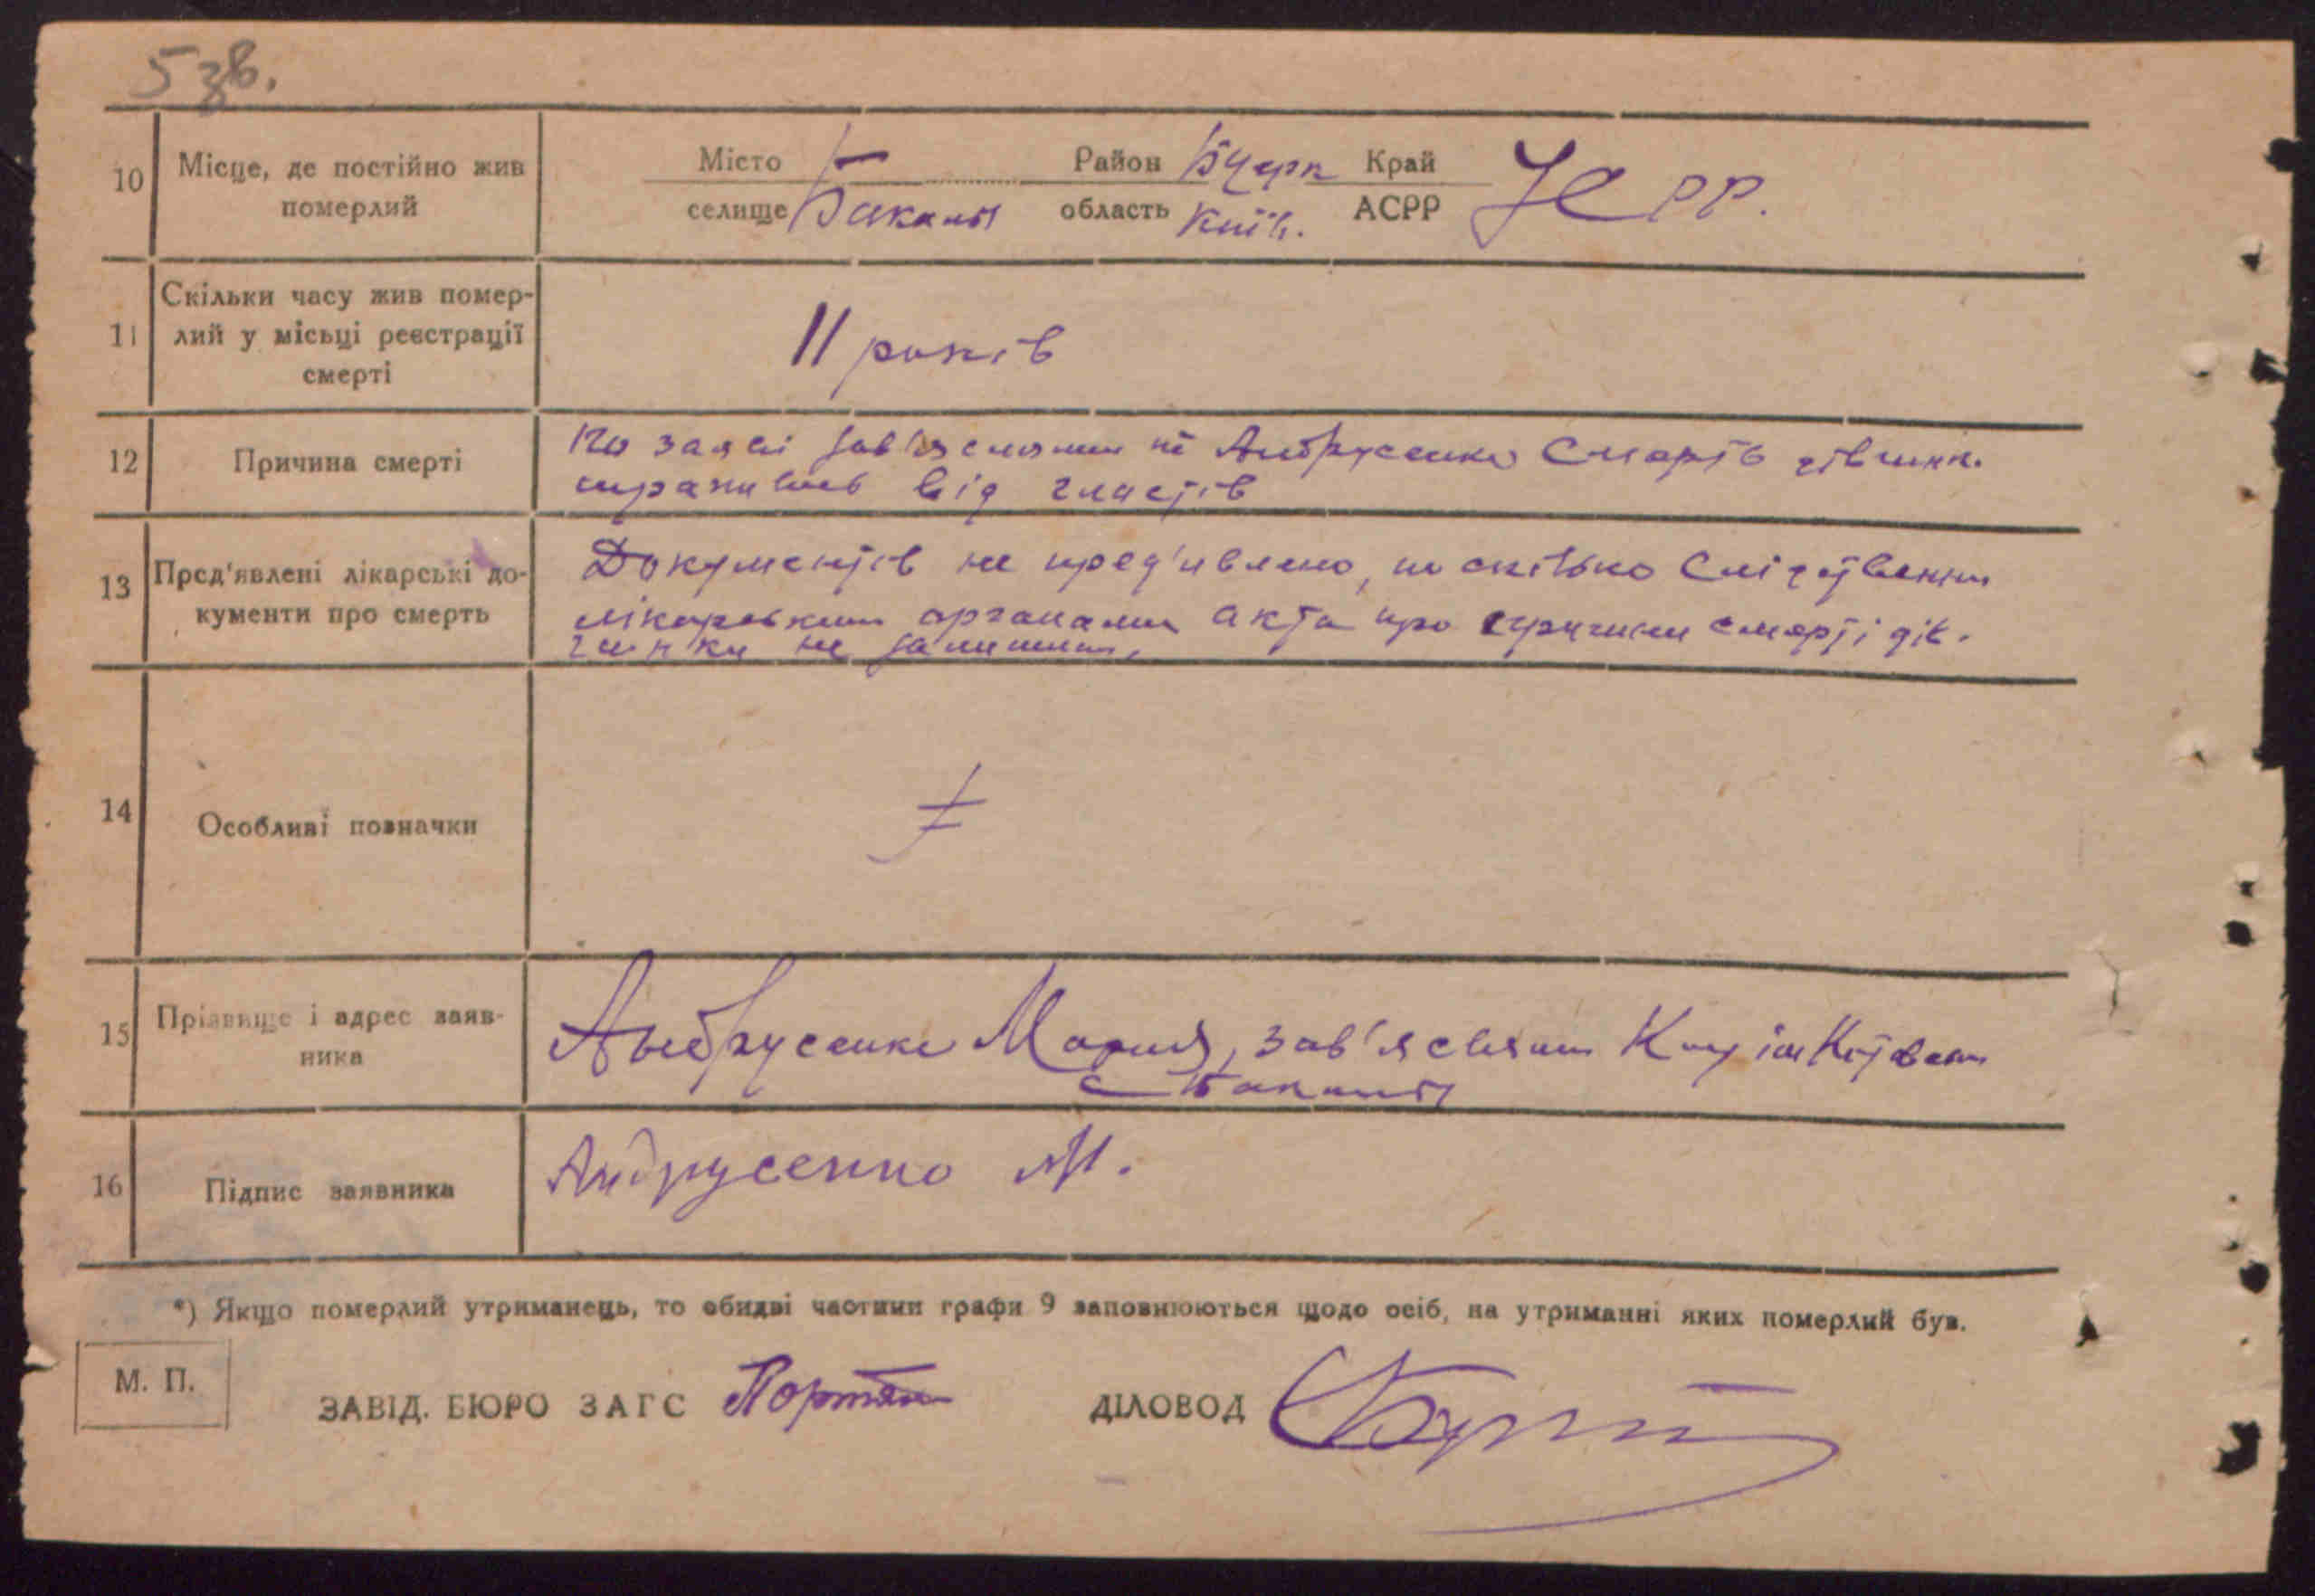 5 зв.
10 Місце, де постійно жив померлий
Місто Район Бчерк Край УСРР.
селище Бакали область Київ. АСРР
11 Скільки часу жив помер-
лий у місьці реєстрації
смерті
11 років
12 Причина смерті
по заяві Андрусенко Смерть дівчинк.
від глистів
13 Пред'явлені лікарські до-
кументи про смерть
Документів не пред'явлено, поскілько Слідствении
лікарськими органами акта про причини смерті дів.
чинки не залишили,
14 Особливі позначки
15 Прізвище і адрес заяв-
ника
Андрусенко Мария,
с
16 Підпис заявника
Андрусенко М.
*) Якщо померлий утриманець, то обидві частини графи 9 заповнюються щодо осіб, на утриманні яких померлий був.
М. П.
ЗАВІД. БЮРО ЗАГС ДІЛОВОД